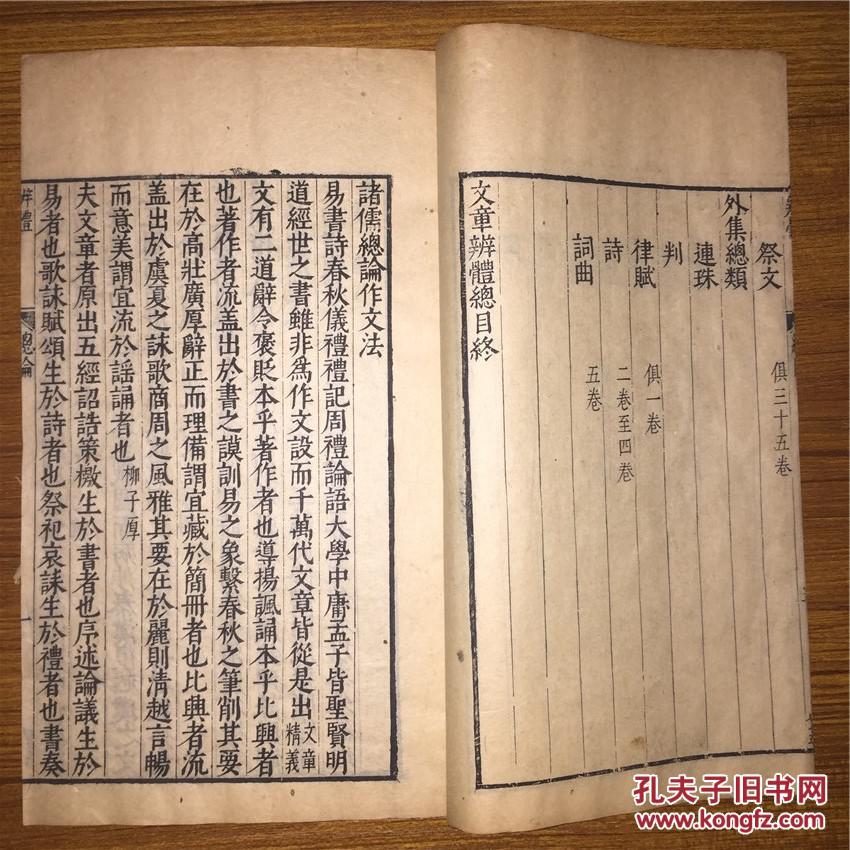 祭文
俱三十五卷
外集總類
連珠
判
律賦
俱一卷
詩
二卷至四卷
詞曲
五卷
文章辨體總目終
諸儒總論作文法
易書詩春秋儀禮禮記周禮論語大學中庸孟子皆聖賢明
道經世之書雖非爲作文設而千萬代文章皆從是出文章精義
文有二道辭令褒貶本乎著作者也導揚諷誦本乎比興者
也著作者流盖出於書之謨訓易之象繫春秋之筆削其要
在於高壯廣厚辭正而理備謂宜藏於簡冊者也比興者流
盖出於虞夏之詠歌商周之風雅其要在於麗則清越言暢
而意美謂宜流於謡誦者也柳子厚
夫文章者原出五經詔誥策檄生於書者也序述論議生於
易者也歌詠賦頌生於詩者也祭祀哀誄生於禮者也書奏
辨體
總論
一
孔夫子旧书网
www.kongfz.com